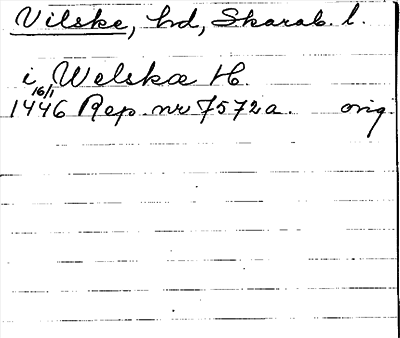 Vilske, hd, Skarab. l.
i Welskæ H.
16/1
1446 Rep. nr 7572a. orig.